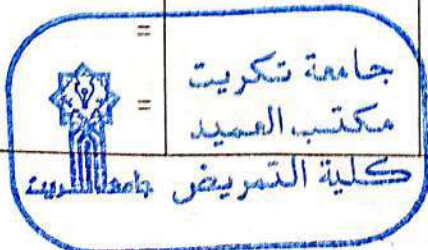 =
=
جامعة تكريت
مكتب العميد
كلية التمريض
جامعة تكريت